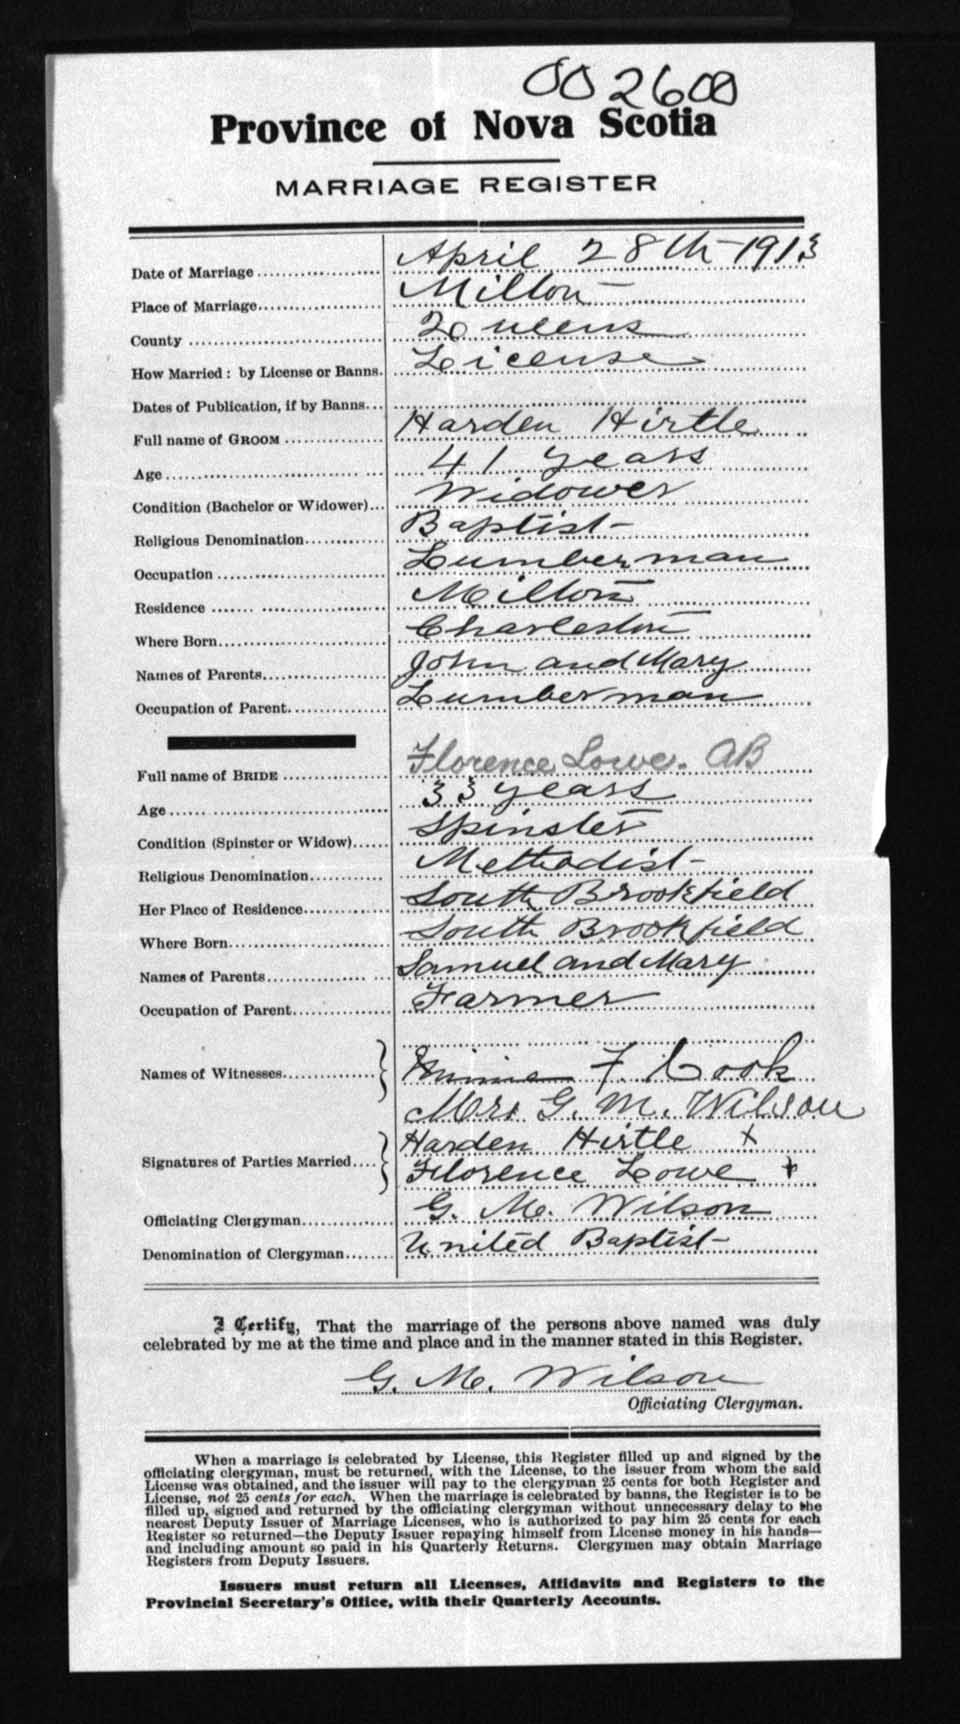 002600
Province of Nova Scotia
MARRIAGE REGISTER
Date of Marriage April 28th 1913
Place of Marriage Milton
County Queens
How Married: by License or Banns. License
Dates of Publication, if by Banns
Full name of GROOM Harden Hirtle
Age 41 years
Condition (Bachelor or Widower) Widower
Religious Denomination Baptist
Occupation Lumberman
Residence Milton
Where Born Charleston
Names of Parents John and Mary
Occupation of Parent Lumberman
Full name of BRIDE Florence Lowe. AB
Age 33 years
Condition (Spinster or Widow) Spinster
Religious Denomination Methodist
Her Place of Residence South Brookfield
Where Born South Brookfield
Names of Parents Samuel and Mary
Occupation of Parent Farmer
Names of Witnesses F. Cook
Mrs G. M. Wilson
Signatures of Parties Married Harden Hirtle x
Florence Lowe +
Officiating Clergyman G. M. Wilson
Denomination of Clergyman United Baptist
I Certify, That the marriage of the persons above named was duly
celebrated by me at the time and place and in the manner stated in this Register.
G. M. Wilson
Officiating Clergyman.
When a marriage is celebrated by License, this Register filled up and signed by the
officiating clergyman, must be returned, with the License, to the issuer from whom the said
License was obtained, and the issuer will pay to the clergyman 25 cents for both Register and
License, not 25 cents for each. When the marriage is celebrated by banns, the Register is to be
filled up, signed and returned by the officiating clergyman without unnecessary delay to the
nearest Deputy Issuer of Marriage Licenses, who is authorized to pay him 25 cents for each
Register so returned—the Deputy Issuer repaying himself from License money in his hands—
and including amount so paid in his Quarterly Returns. Clergymen may obtain Marriage
Registers from Deputy Issuers.
Issuers must return all Licenses, Affidavits and Registers to the
Provincial Secretary's Office, with their Quarterly Accounts.